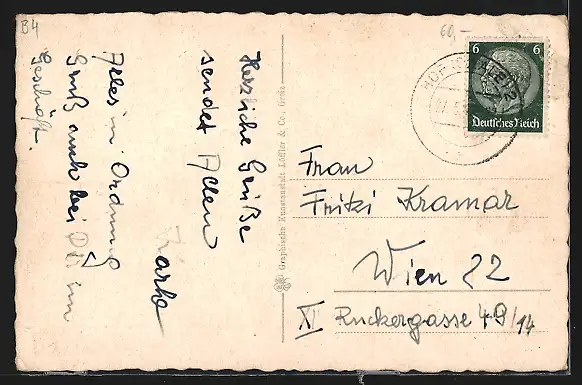 B4
60,-
6 6
Deutsches Reich
HOF
Herzliche Grüße
sendet Allen
Alles in Ordnung
Gruß auch bei Dir im
Geschäft.
Graphische Kunstanstalt Löffler & Co., Greiz
Frau
Fritzi Kramar
Wien 22
XII Ruckergasse 49/14